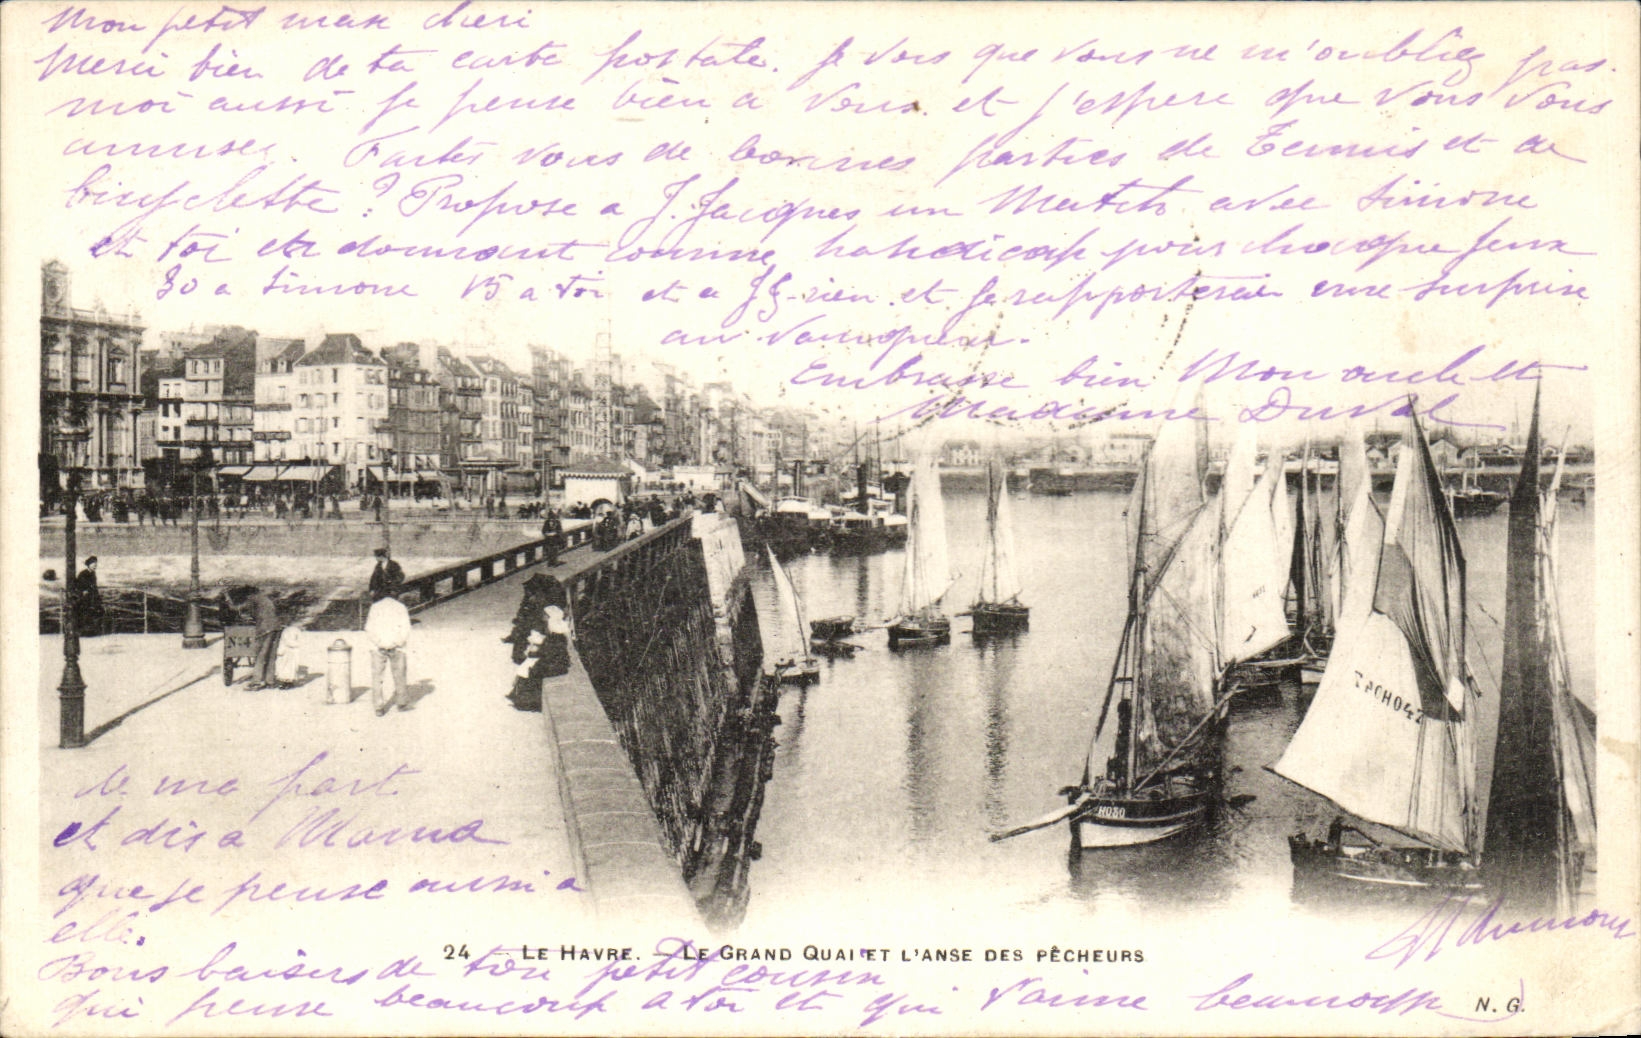 Mon petit max cheri
Merci bien de ta carte postale. Je vois que vous ne m'oubliez pas.
moi aussi je pense bien a vous. et j'espere que vous vous
amusez. Faites vous de bonnes parties de Tennis et de
bicyclette ? Propose a J. Jacques un Match avec Simone
et toi en donnant comme handicap pour chaque jeux
30 a Simone 15 a toi et a JJ. rien. et je rapporterai une surprise
au vainqueur.
Embrasse bien Mon oncle et
Madame Duval
de ma part.
et dis a Mama
que je pense aussi a
elle.
Bons baisers de ton petit cousin
qui pense beaucoup a toi et qui t'aime beaucoup
No 4
HO80
24 — LE HAVRE. — LE GRAND QUAI ET L'ANSE DES PÊCHEURS
N. G.